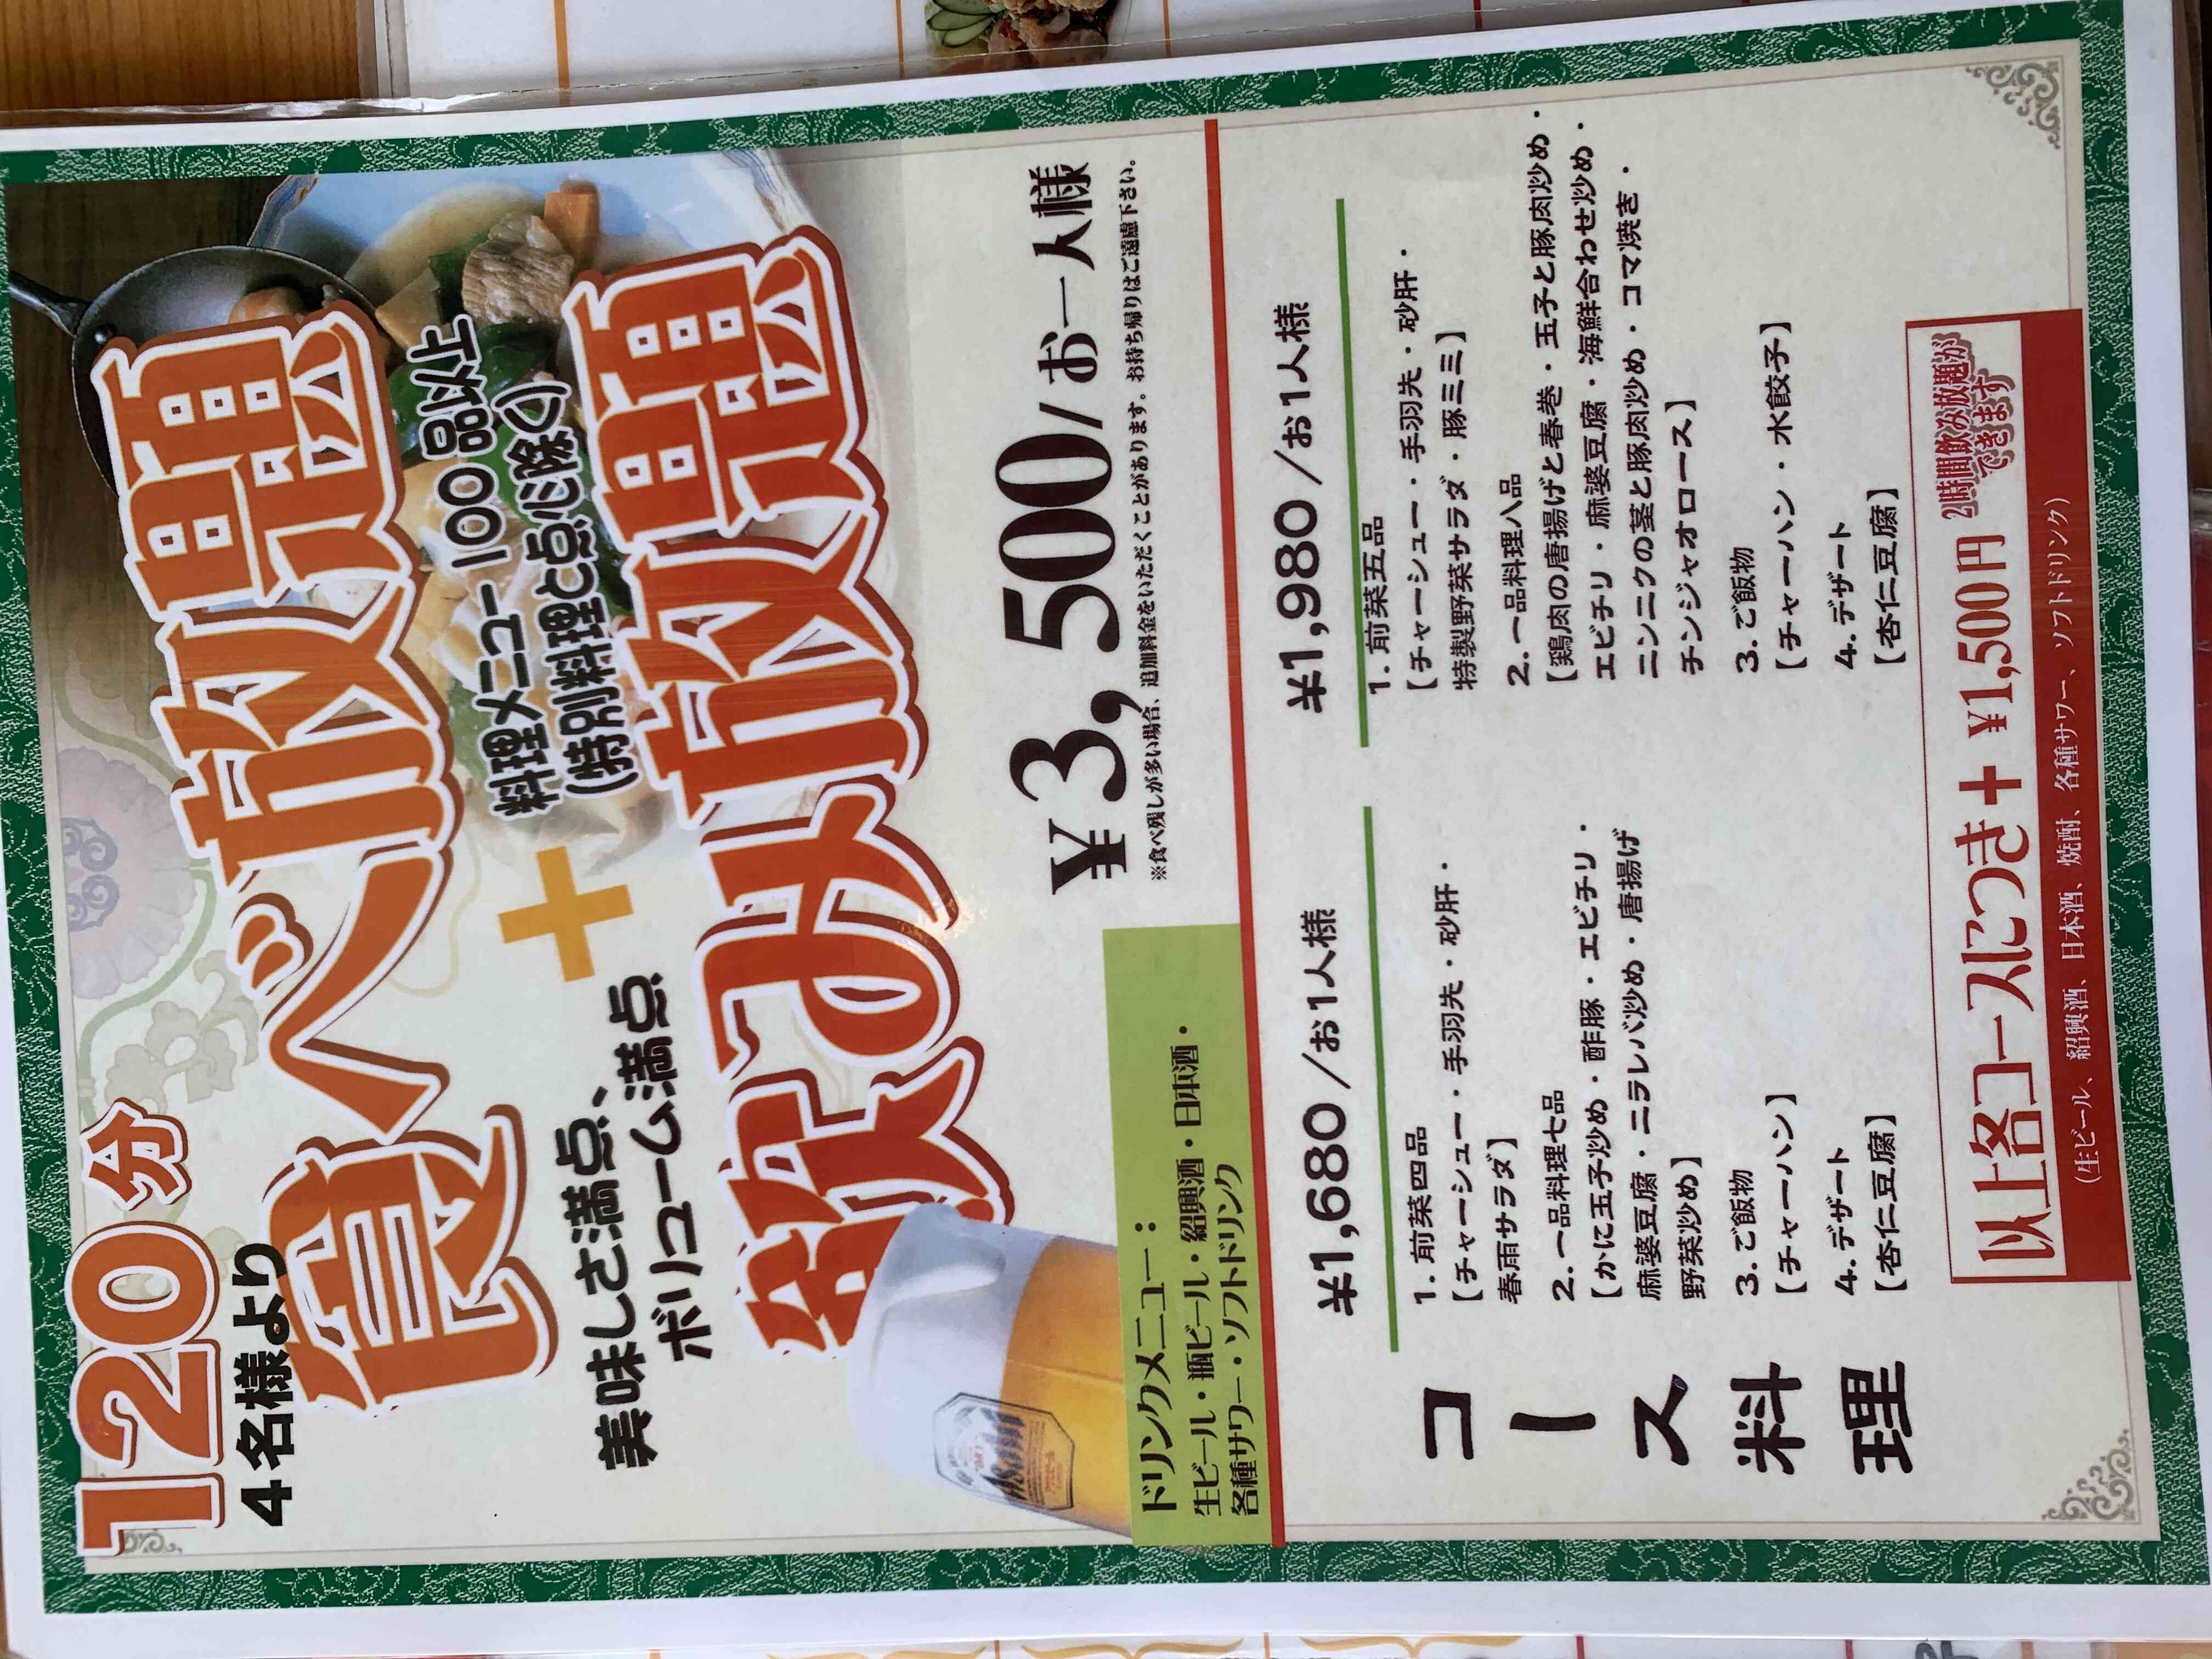 120分
4名様より
食べ放題
料理メニュー100品以上
(特別料理と点心除く)
美味しさ満点、
ボリューム満点
+
飲み放題
Asahi
¥3,500/お一人様
※食べ残しが多い場合、追加料金をいただくことがあります。お持ち帰りはご遠慮下さい。
ドリンクメニュー：
生ビール・瓶ビール・紹興酒・日本酒・
各種サワー・ソフトドリンク
コース料理
¥1,680/お1人様
1.前菜四品
【チャーシュー・手羽先・砂肝・
春雨サラダ】
2.一品料理七品
【かに玉子炒め・酢豚・エビチリ・
麻婆豆腐・ニラレバ炒め・唐揚げ
野菜炒め】
3.ご飯物
【チャーハン】
4.デザート
【杏仁豆腐】
¥1,980/お1人様
1.前菜五品
【チャーシュー・手羽先・砂肝・
特製野菜サラダ・豚ミミ】
2.一品料理八品
【鶏肉の唐揚げと春巻・玉子と豚肉炒め・
エビチリ・麻婆豆腐・海鮮合わせ炒め・
ニンニクの茎と豚肉炒め・コマ焼き・
チンジャオロース】
3.ご飯物
【チャーハン・水餃子】
4.デザート
【杏仁豆腐】
以上各コースにつき+¥1,500円 2時間飲み放題が
できます
(生ビール、紹興酒、日本酒、焼酎、各種サワー、ソフトドリンク)